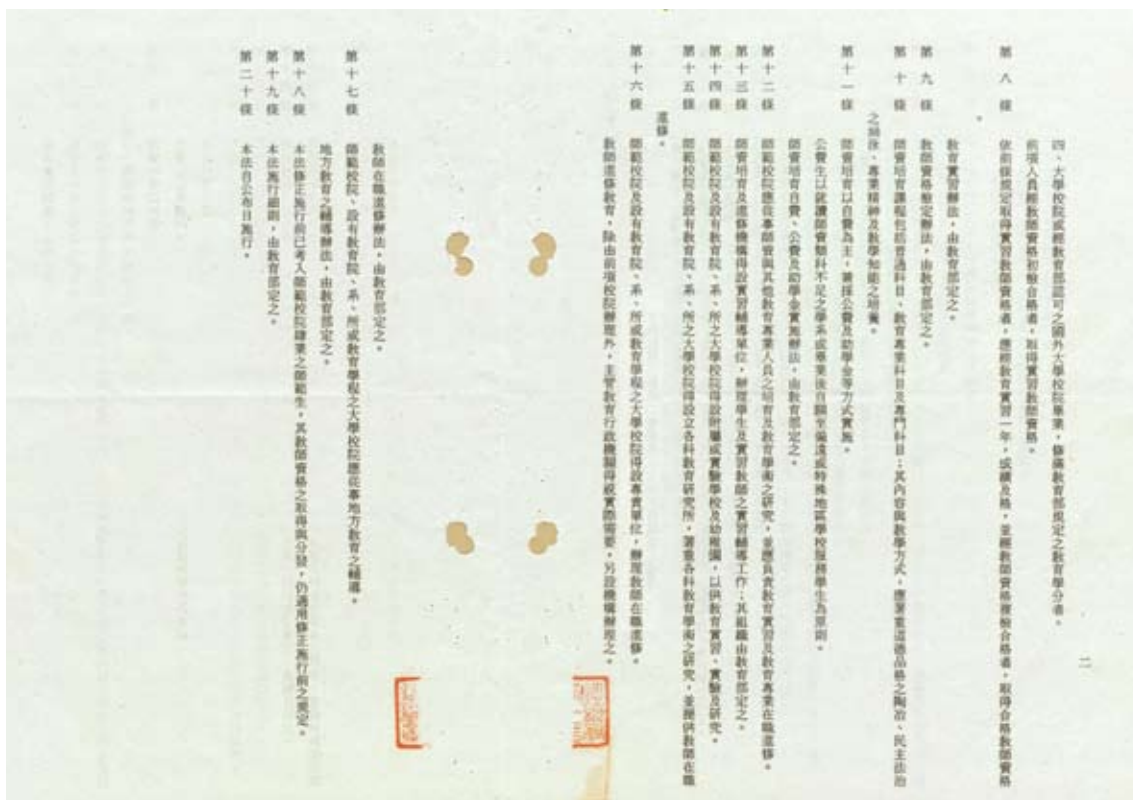 二
四、大學校院或經教育部認可之國外大學校院畢業，修滿教育部規定之教育學分者。
前項人員經教師資格初檢合格者，取得實習教師資格。
第八條 依前條規定取得實習教師資格者，應經教育實習一年，成績及格，並經教師資格複檢合格者，取得合格教師資格
。
教育實習辦法，由教育部定之。
第九條 教師資格檢定辦法，由教育部定之。
第十條 師資培育課程包括普通科目、教育專業科目及專門科目；其內容與教學方式，應著重道德品格之陶冶、民主法治
之涵泳、專業精神及教學知能之培養。
第十一條 師資培育以自費為主，兼採公費及助學金等方式實施。
公費生以就讀師資類科不足之學系或畢業後自願至偏遠或特殊地區學校服務學生為原則。
師資培育自費、公費及助學金實施辦法，由教育部定之。
第十二條 師範校院應從事師資與其他教育專業人員之培育及教育學術之研究，並應負責教育實習及教育專業在職進修。
第十三條 師資培育及進修機構得設實習輔導單位，辦理學生及實習教師之實習輔導工作；其組織由教育部定之。
第十四條 師範校院及設有教育院、系、所之大學校院得設附屬或實驗學校及幼稚園，以供教育實習、實驗及研究。
第十五條 師範校院及設有教育院、系、所之大學校院得設立各科教育研究所，著重各科教育學術之研究，並提供教師在職
進修。
第十六條 師範校院及設有教育院、系、所或教育學程之大學校院得設專責單位，辦理教師在職進修。
教師進修教育，除由前項校院辦理外，主管教育行政機關得視實際需要，另設機構辦理之。
教師在職進修辦法，由教育部定之。
第十七條 師範校院、設有教育院、系、所或教育學程之大學校院應從事地方教育之輔導。
地方教育之輔導辦法，由教育部定之。
第十八條 本法修正施行前已考入師範校院肄業之師範生，其教師資格之取得與分發，仍適用修正施行前之規定。
第十九條 本法施行細則，由教育部定之。
第二十條 本法自公布日施行。